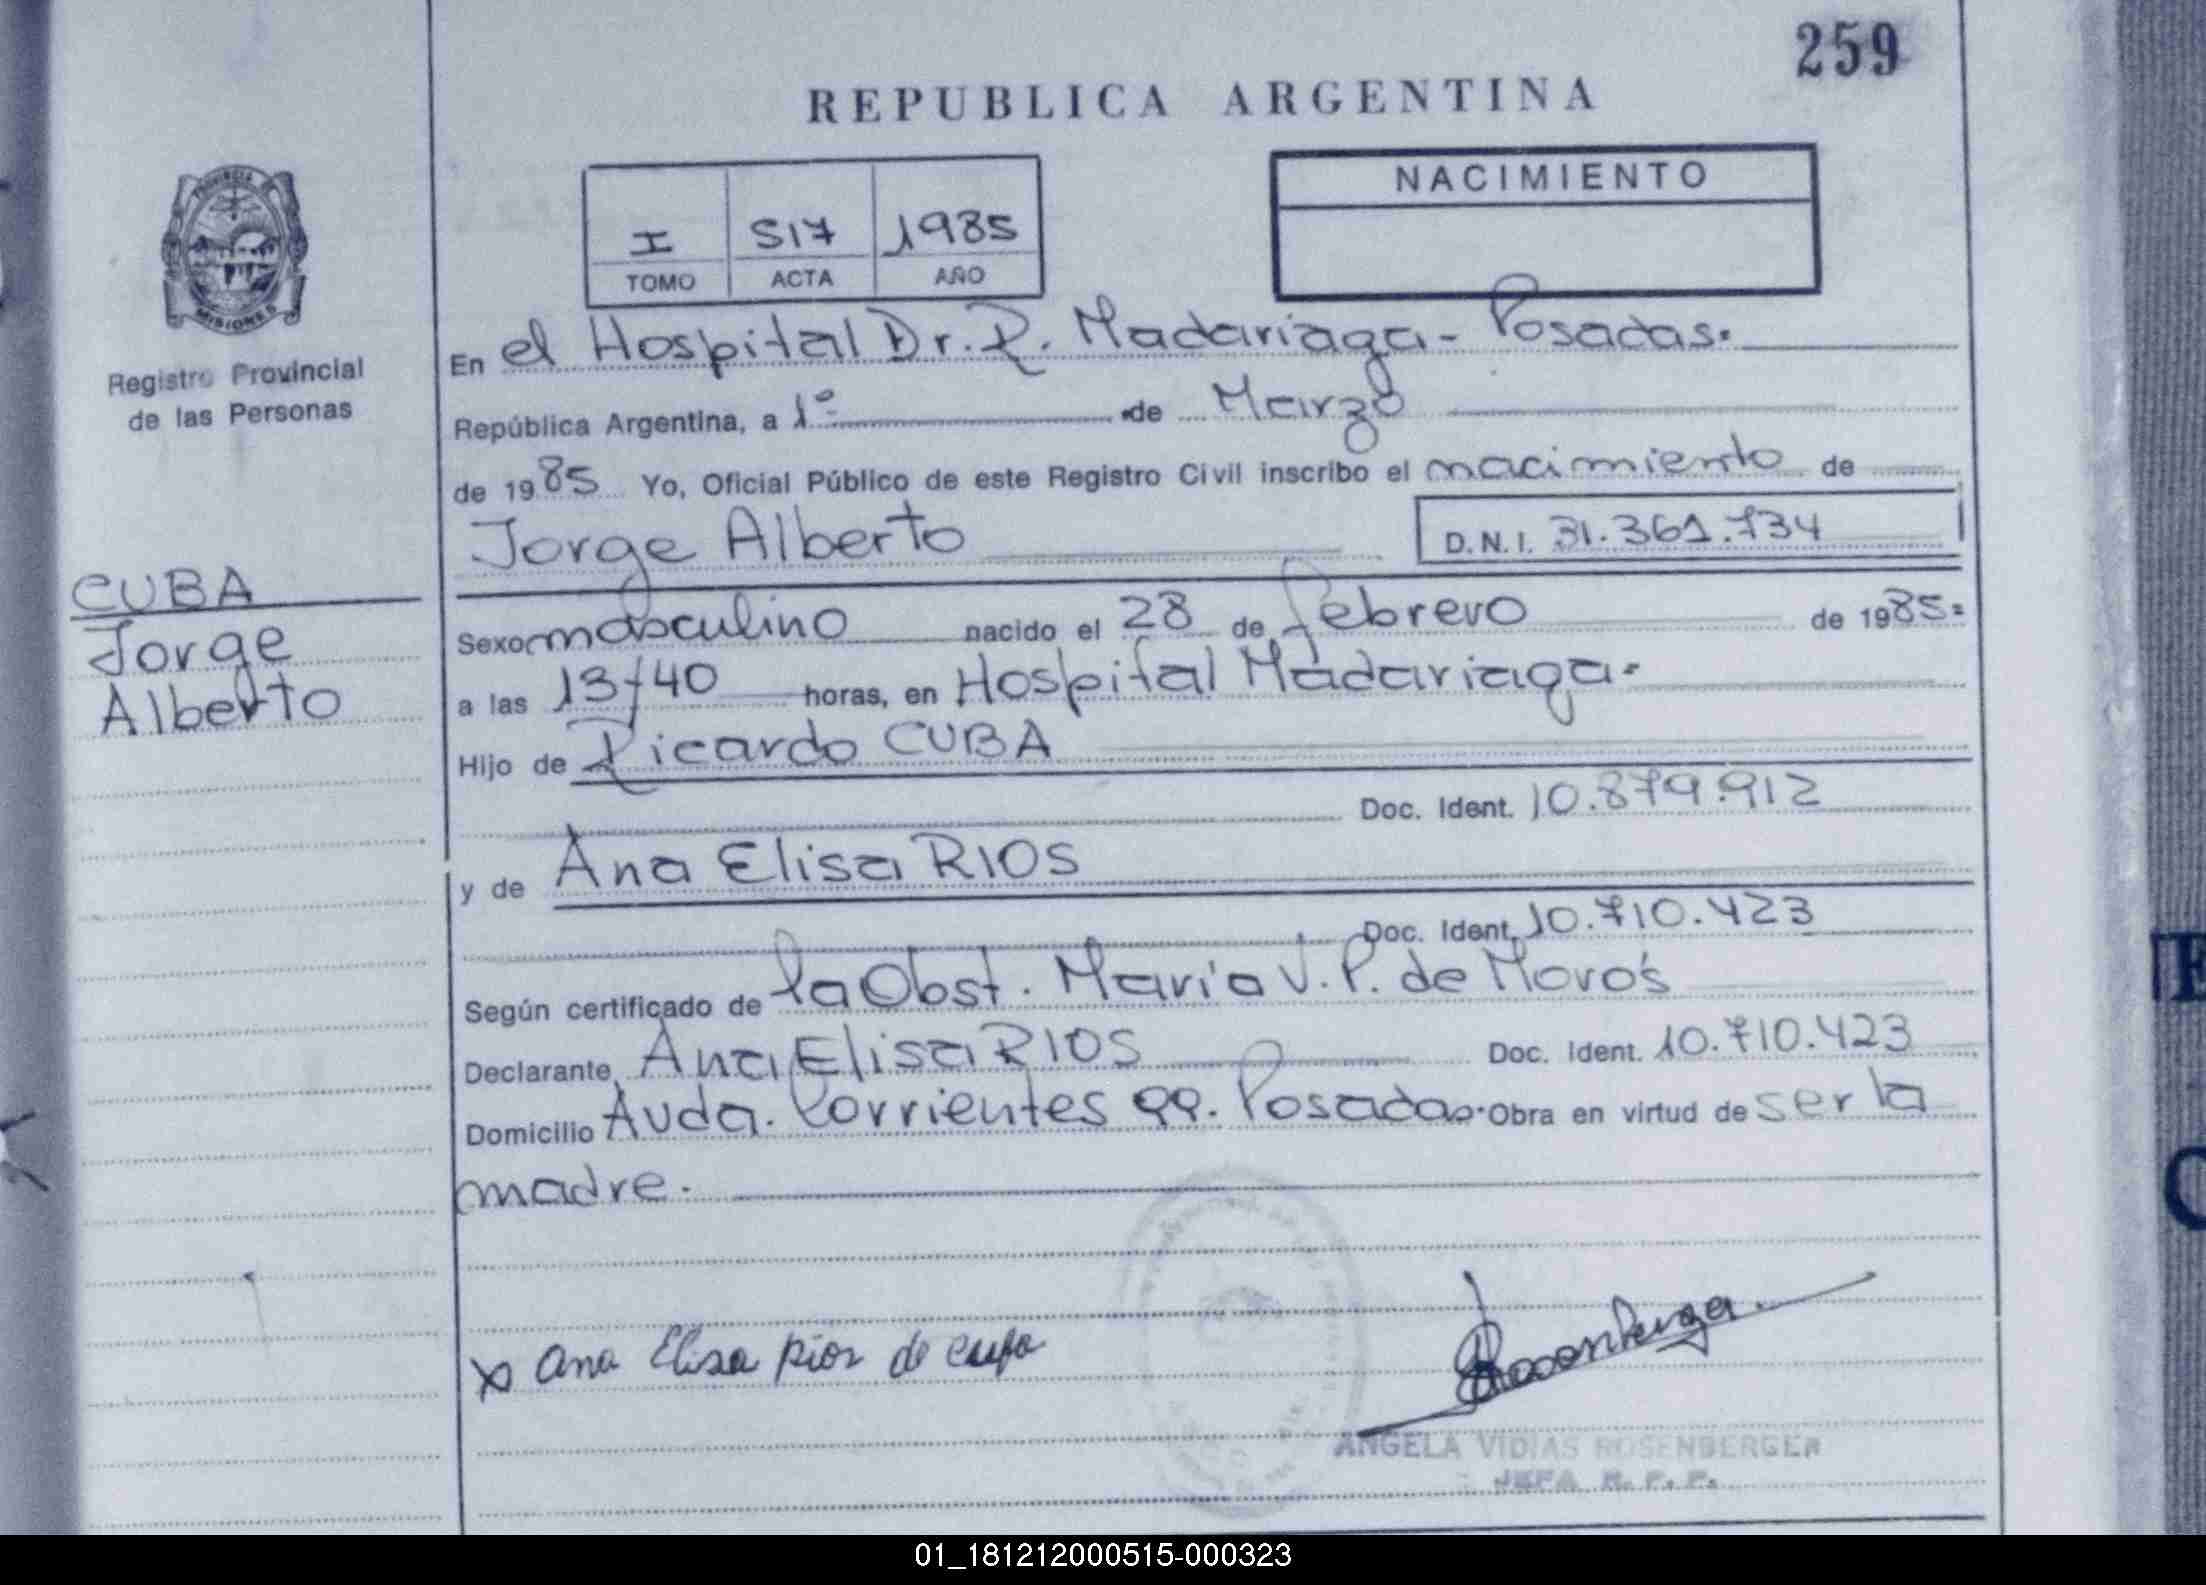 259
REPUBLICA ARGENTINA
I 517 1985
TOMO ACTA AÑO
NACIMIENTO
PROVINCIA DE
MISIONES
Registro Provincial
de las Personas
En el Hospital Dr. R. Madariaga - Posadas.
República Argentina, a 1° de Marzo
de 1985 Yo, Oficial Público de este Registro Civil inscribo el nacimiento de
Jorge Alberto D.N.I. 31.361.734
CUBA
Jorge
Alberto
Sexo masculino nacido el 28 de febrero de 1985=
a las 13/40 horas, en Hospital Madariaga.
Hijo de Ricardo CUBA
Doc. Ident. 10.879.912
y de Ana Elisa RIOS
Doc. Ident. 10.710.423
Según certificado de la Obst. María V. P. de Morós
Declarante Ana Elisa RIOS Doc. Ident. 10.710.423
Domicilio Avda. Corrientes 99. Posadas. Obra en virtud de ser la
madre.
x Ana Elisa Rios de
ANGELA VIDIAS ROSENBERGER
JEFA R. P. P.
01_181212000515-000323